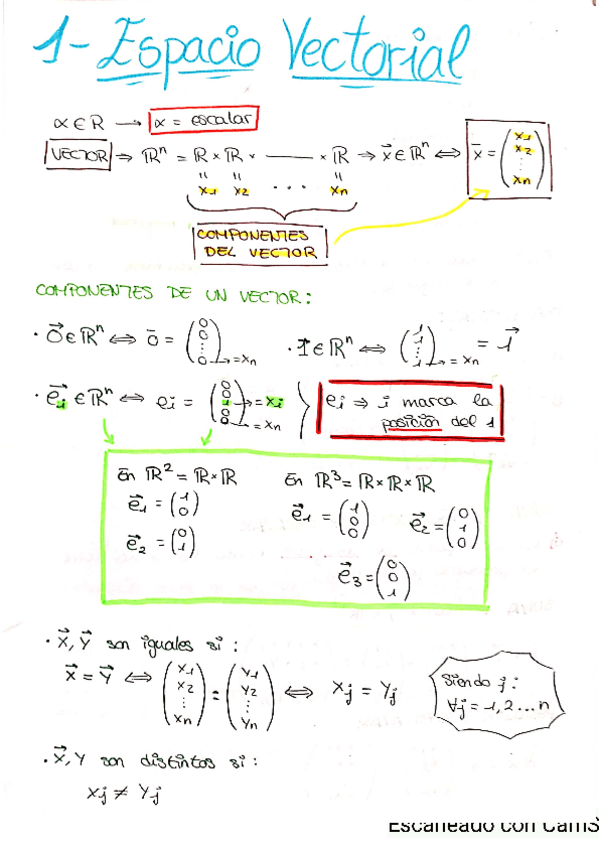 1- Espacio Vectorial
α ∈ ℝ → α = escalar
VECTOR ⇒ ℝⁿ = ℝ × ℝ × ——— × ℝ ⇒ x⃗ ∈ ℝⁿ ⇔ x̄ = (x₁ x₂ ⋮ xₙ)
" " "
x₁ x₂ ... xₙ
COMPONENTES
DEL VECTOR
COMPONENTES DE UN VECTOR:
· 0⃗ ∈ ℝⁿ ⇔ 0̄ = (0 0 ⋮ 0) → = xₙ · 1⃗ ∈ ℝⁿ ⇔ (1 1 ⋮ 1) → = xₙ = 1⃗
· e⃗ᵢ ∈ ℝⁿ ⇔ eᵢ = (0 0 1 0 0) → = xᵢ → = xₙ
eᵢ ⇒ i marca la
posición del 1
En ℝ² = ℝ × ℝ
e⃗₁ = (1 0)
e⃗₂ = (0 1)
En ℝ³ = ℝ × ℝ × ℝ
e⃗₁ = (1 0 0) e⃗₂ = (0 1 0)
e⃗₃ = (0 0 1)
· x⃗, y⃗ son iguales si :
x⃗ = y⃗ ⇔ (x₁ x₂ ⋮ xₙ) = (y₁ y₂ ⋮ yₙ) ⇔ xⱼ = yⱼ
Siendo j :
∀j = 1, 2 ... n
· x⃗, y son distintos si :
xⱼ ≠ yⱼ
Escaneado con CamS